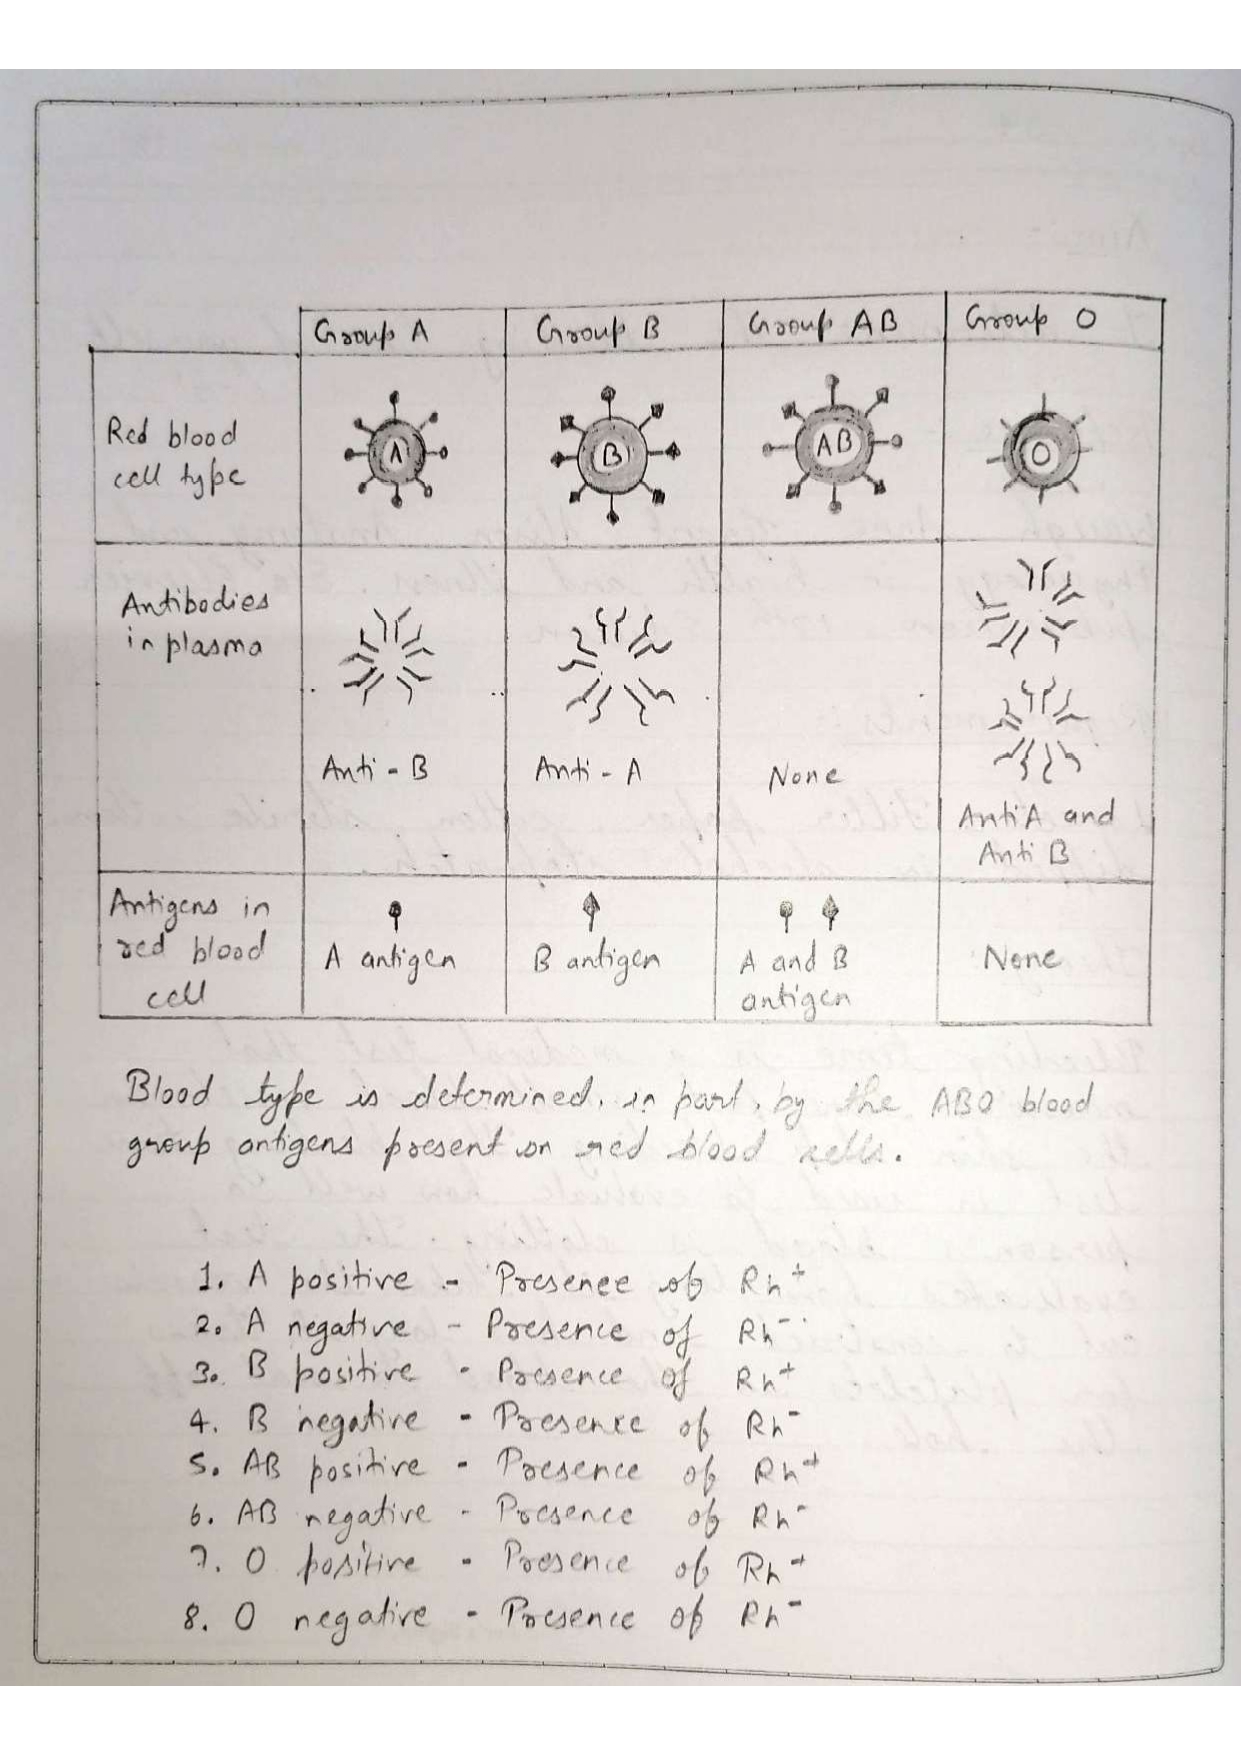 Group A Group B Group AB Group O
Red blood
cell type
A B AB O
Antibodies
in plasma
Anti - B Anti - A None
Anti A and
Anti B
Antigens in
red blood
cell
A antigen B antigen A and B
antigen
None
Blood type is determined, in part, by the ABO blood
group antigens present on red blood cells.
1. A positive - Presence of Rh+
2. A negative - Presence of Rh-
3. B positive - Presence of Rh+
4. B negative - Presence of Rh-
5. AB positive - Presence of Rh+
6. AB negative - Presence of Rh-
7. O positive - Presence of Rh+
8. O negative - Presence of Rh-